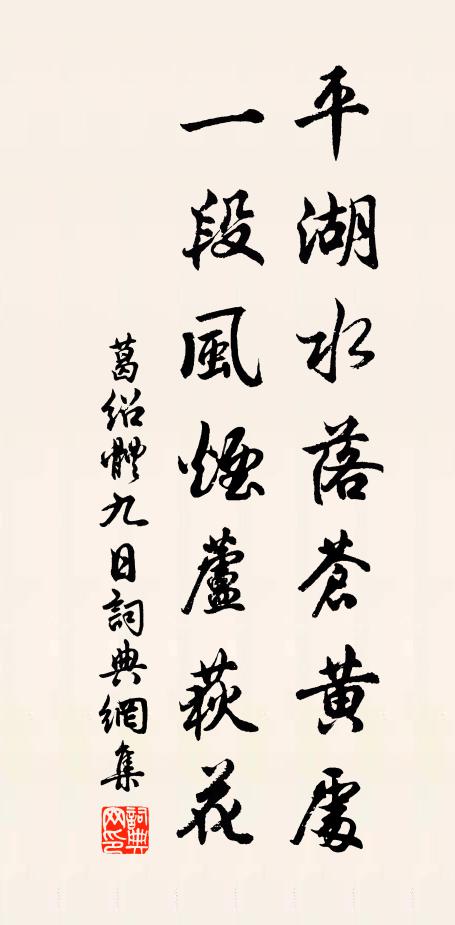 平湖水落蒼黄處
一段風煙蘆荻花
葛紹體九日詞典網集
詞典
网印